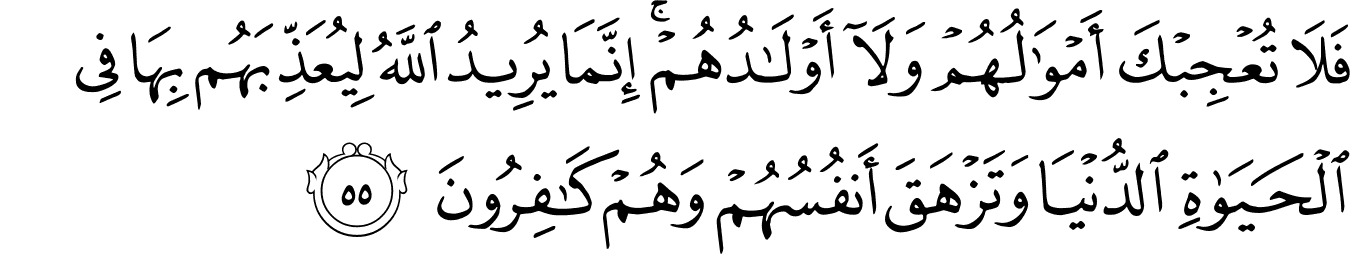 فَلَا تُعْجِبْكَ أَمْوَٰلُهُمْ وَلَآ أَوْلَـٰدُهُمْ ۚ إِنَّمَا يُرِيدُ ٱللَّهُ لِيُعَذِّبَهُم بِهَا فِى
ٱلْحَيَوٰةِ ٱلدُّنْيَا وَتَزْهَقَ أَنفُسُهُمْ وَهُمْ كَـٰفِرُونَ ٥٥